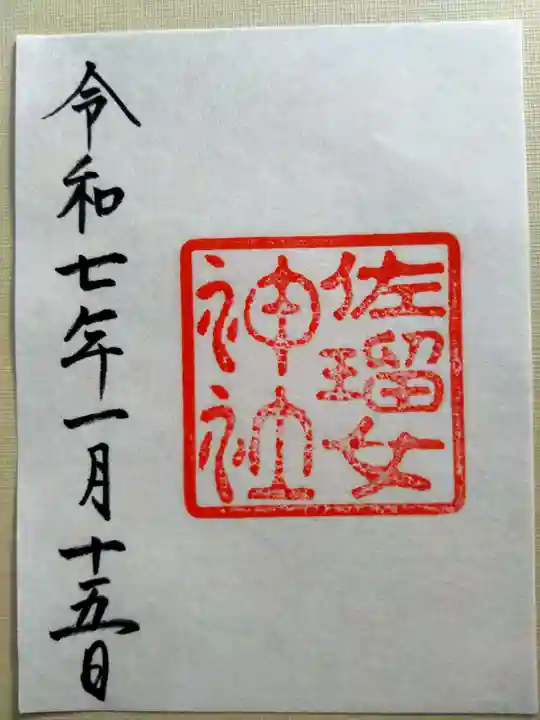 佐瑠女
神社
令和七年一月十五日